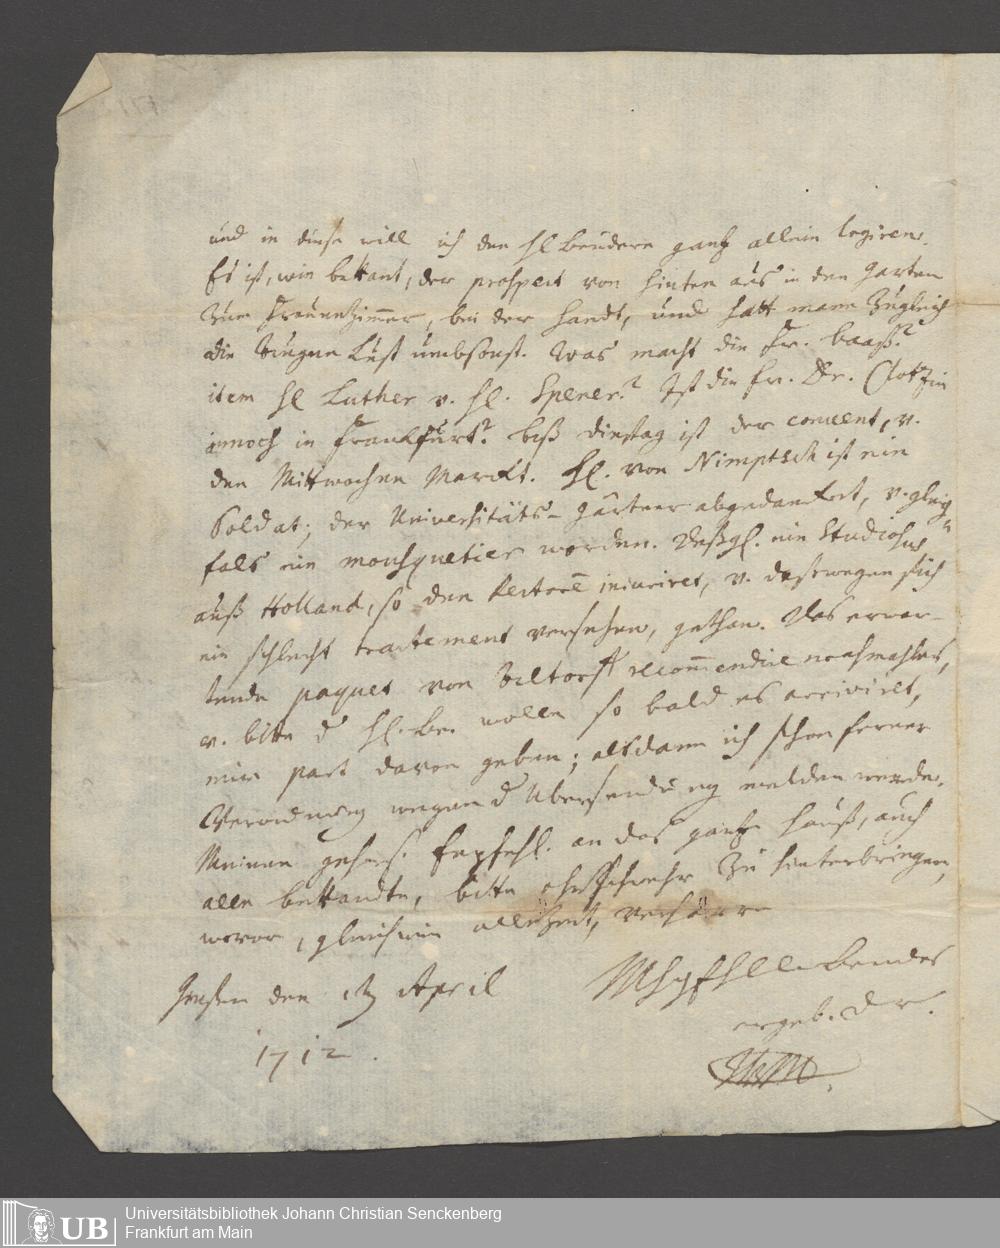 und in diese will ich den Hl Brudern gantz allein logiren.
Es ist, wie bekant, der prospect von hinten aus in den Garten
zum Frauenzimmer, bei der Handt, und hatt mann zugleich
die Augen Lust umbsonst. Was macht die Fr. baaß?
item Hl Luther v. Hl. Spener? Ist die Fr. Dr. Clotzin
annoch in Franckfurt? biß dinstag ist der convent, v.
den Mittwochen Marckt. Hl. von Nimptsch ist ein
Soldat; der Universitäts-Gärtner abgedanckt, v. gleich
fals ein mousquetier worden. Deßgl. ein Studiosus
auß Holland, so den Rectorē iniuriret, v. deßwegen sich
ein schlecht tractement versehen, gethan. Das erwar-
tende paquet von Altorff recom̄endire nochmahles,
v. bitte d Hl. Br. wolle so bald es arriviret,
mir part davon geben; alsdann ich schon ferner
Verordnung wegen d Ubersendung melden werde.
Meinen gehors. Empfehl. an das gantze Hauß, auch
alle bekandte, bitte ohnschwehr zu hinterbringen,
wovor, gleichwie allezeit, verharre
Giesen den April
1712.
Bruders
ergeb. Dr.
Universitätsbibliothek Johann Christian Senckenberg
Frankfurt am Main
UB